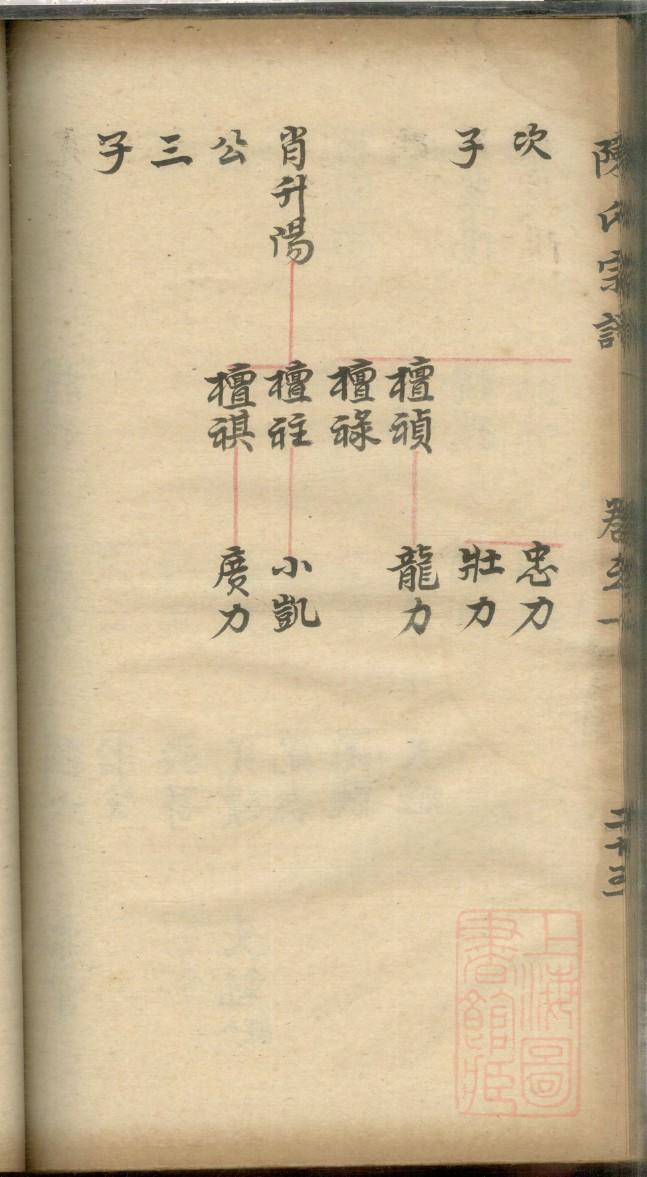 陳氏宗譜
卷
二十三
次
子
肖升陽
公
三
子
檀禎
檀祿
檀祺
忠力
壯力
龍力
小凱
廣力
上海圖
書館藏